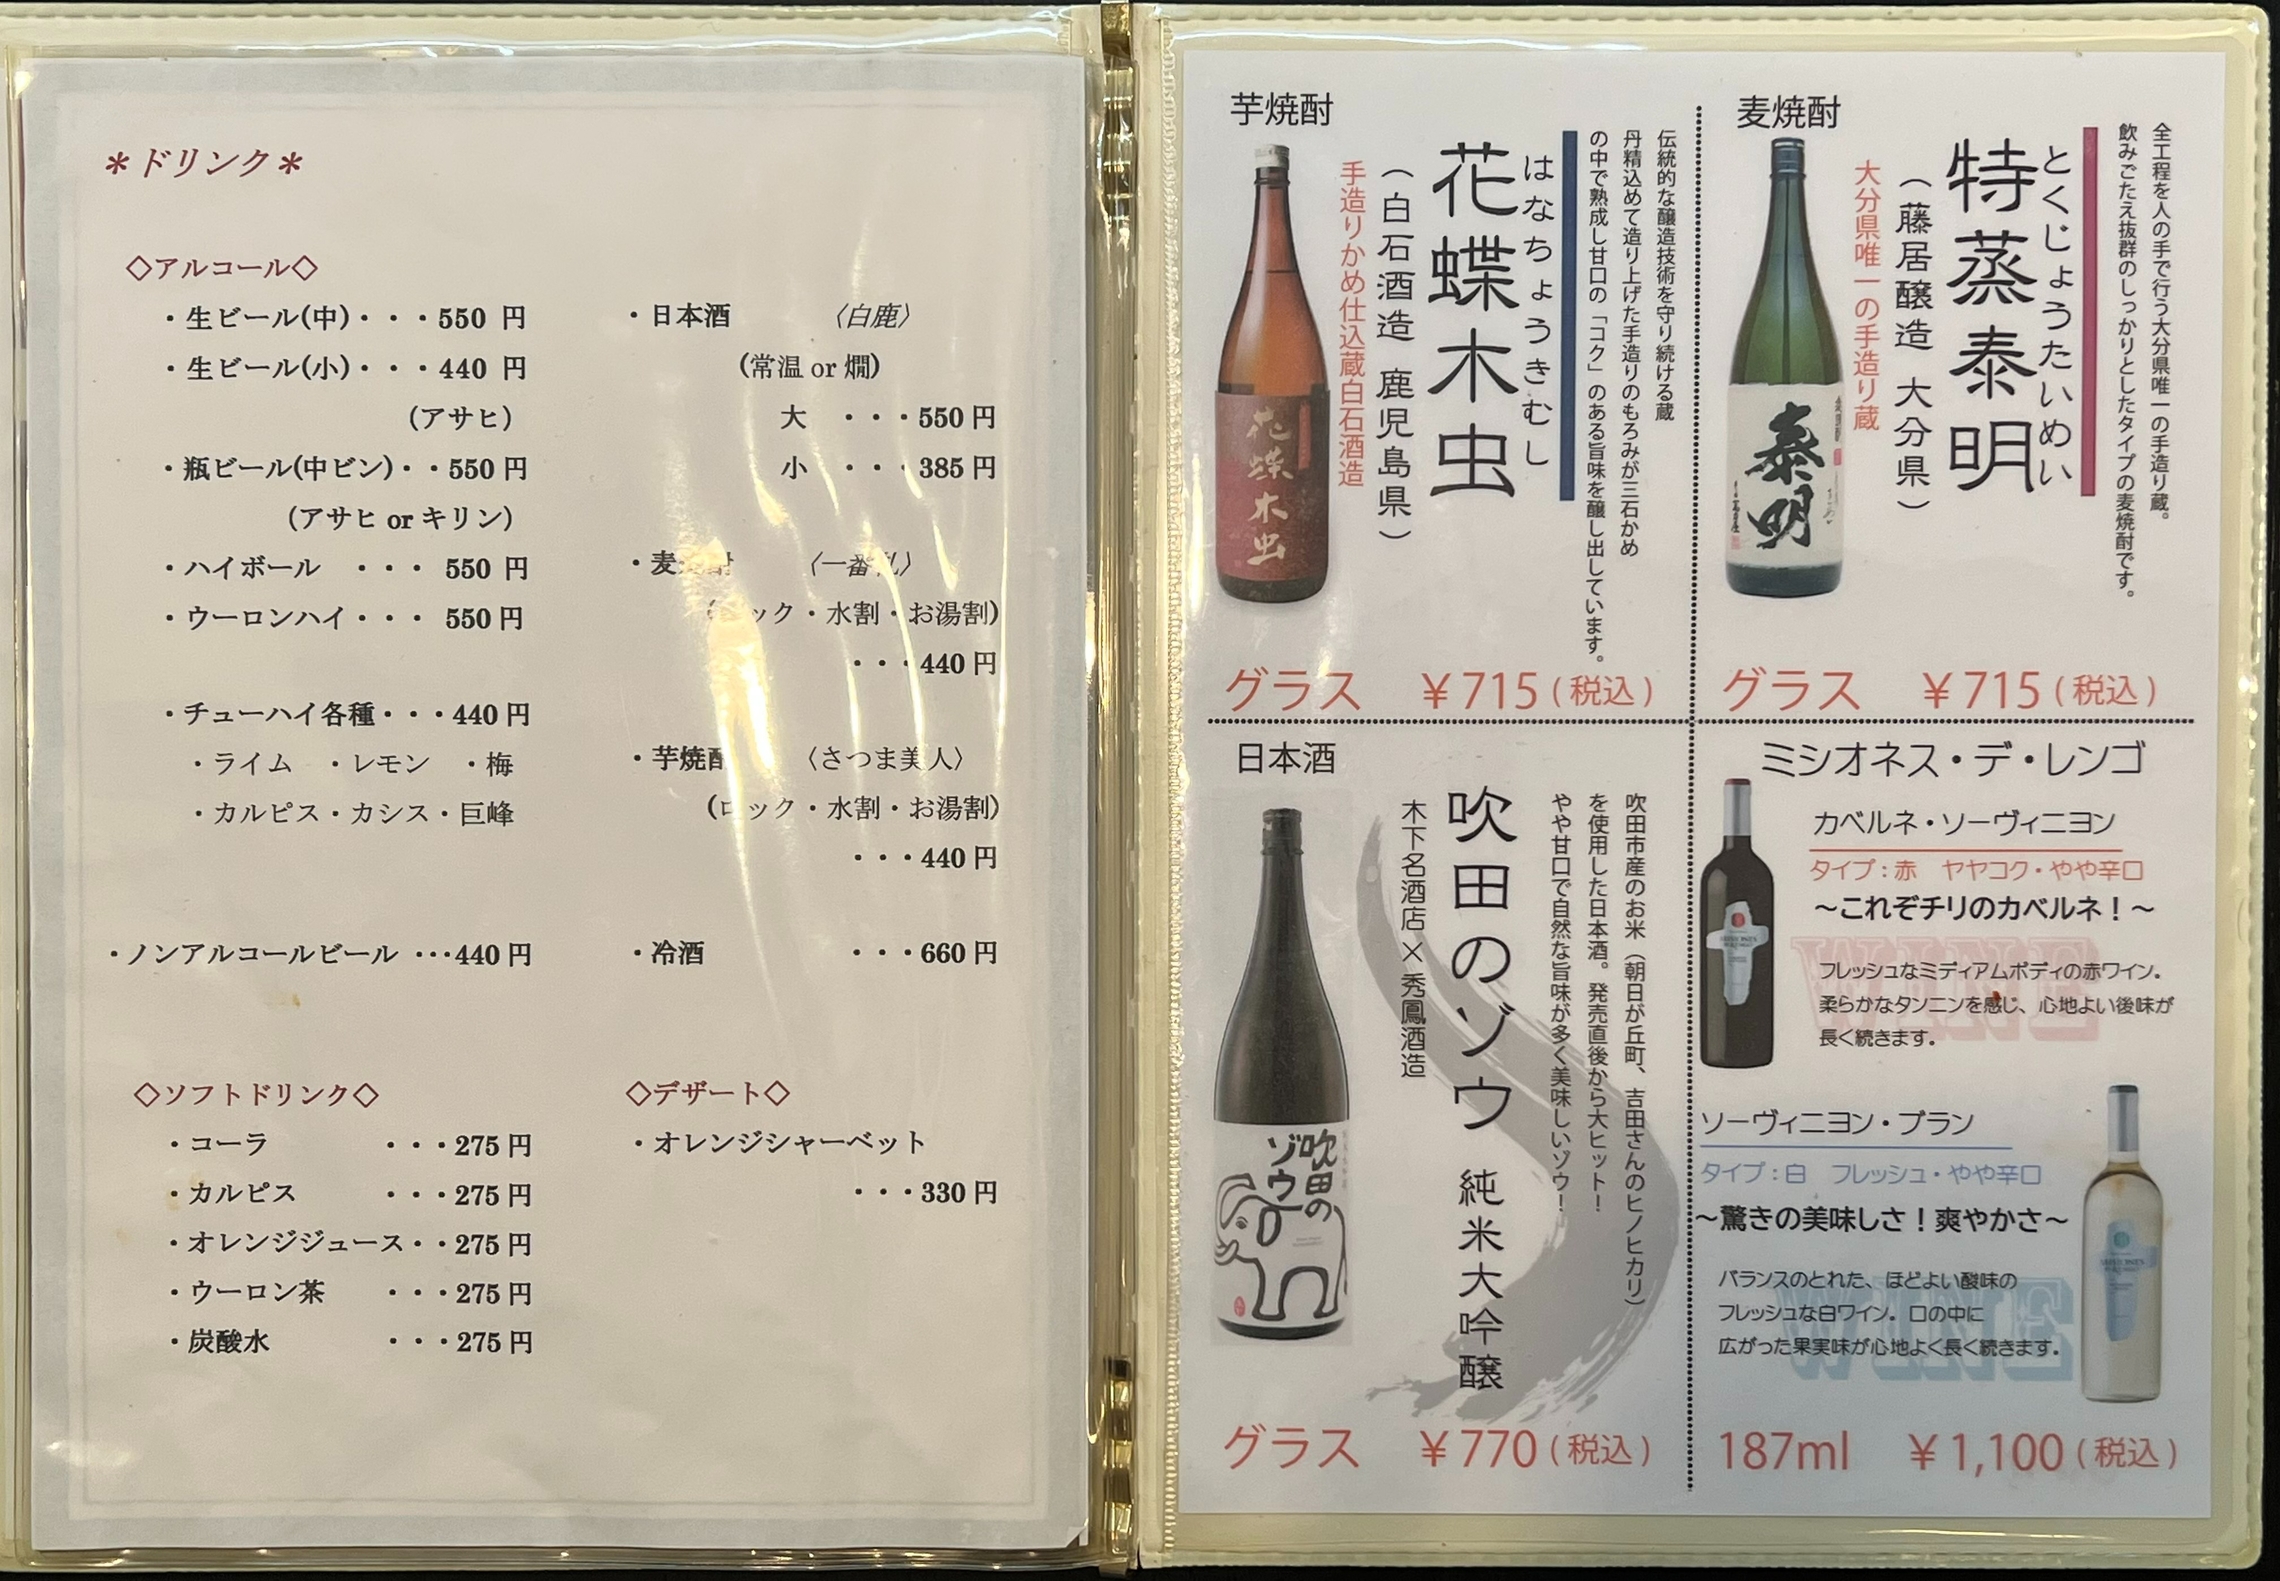 ＊ドリンク＊
◇アルコール◇
・生ビール(中)・・・550 円
・生ビール(小)・・・440 円
(アサヒ)
・瓶ビール(中ビン)・・550 円
(アサヒ or キリン)
・ハイボール ・・・ 550 円
・ウーロンハイ・・・ 550 円
・チューハイ各種・・・440 円
・ライム ・レモン ・梅
・カルピス・カシス・巨峰
・ノンアルコールビール ・・・440 円
・日本酒 〈白鹿〉
(常温 or 燗)
大 ・・・550 円
小 ・・・385 円
・麦焼酎 〈一番札〉
(ロック・水割・お湯割)
・・・440 円
・芋焼酎 〈さつま美人〉
(ロック・水割・お湯割)
・・・440 円
・冷酒 ・・・660 円
◇ソフトドリンク◇
・コーラ ・・・275 円
・カルピス ・・・275 円
・オレンジジュース・・275 円
・ウーロン茶 ・・・275 円
・炭酸水 ・・・275 円
◇デザート◇
・オレンジシャーベット
・・・330 円
芋焼酎
伝統的な醸造技術を守り続ける蔵
丹精込めて造り上げた手造りのもろみが三石かめ
の中で熟成し甘口の「コク」のある旨味を醸し出しています。
はなちょうきむし
花蝶木虫
(白石酒造 鹿児島県)
手造りかめ仕込蔵白石酒造
花蝶木虫
グラス ￥715(税込)
麦焼酎
全工程を人の手で行う大分県唯一の手造り蔵。
飲みごたえ抜群のしっかりとしたタイプの麦焼酎です。
とくじょうたいめい
特蒸泰明
(藤居醸造 大分県)
大分県唯一の手造り蔵
泰明
グラス ￥715(税込)
日本酒
吹田市産のお米(朝日が丘町、吉田さんのヒノヒカリ)
を使用した日本酒。発売直後から大ヒット！
やや甘口で自然な旨味が多く美味しいゾウ！
吹田のゾウ 純米大吟醸
木下名酒店×秀鳳酒造
吹田の
ゾウ
グラス ￥770(税込)
ミシオネス・デ・レンゴ
カベルネ・ソーヴィニヨン
タイプ：赤 ヤヤコク・やや辛口
～これぞチリのカベルネ！～
フレッシュなミディアムボディの赤ワイン。
柔らかなタンニンを感じ、心地よい後味が
長く続きます。
ソーヴィニヨン・ブラン
タイプ：白 フレッシュ・やや辛口
～驚きの美味しさ！爽やかさ～
バランスのとれた、ほどよい酸味の
フレッシュな白ワイン。口の中に
広がった果実味が心地よく長く続きます。
187ml ￥1,100(税込)